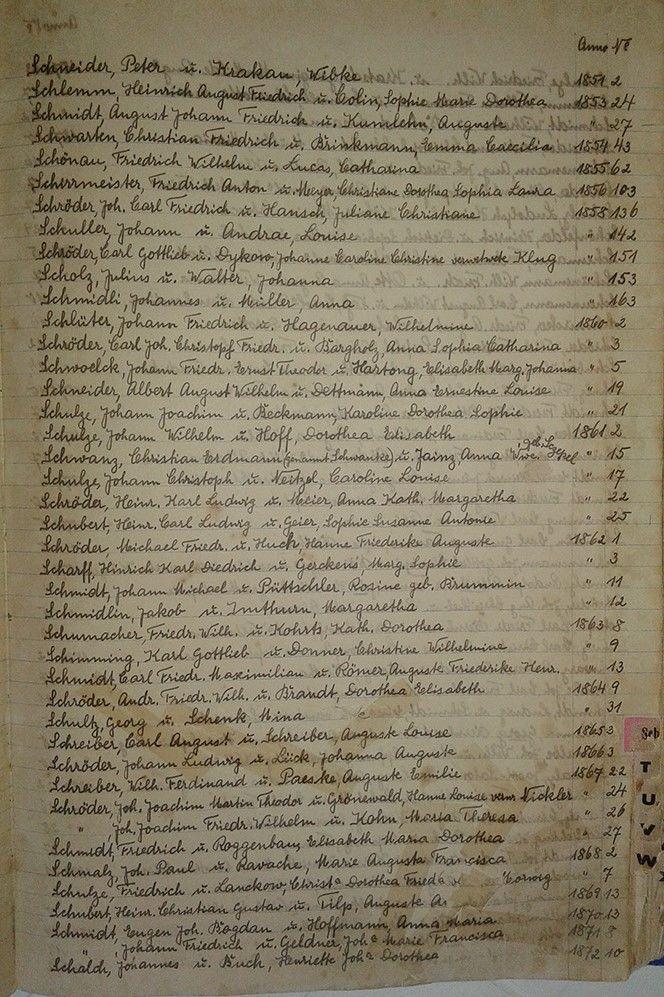 Anno Nº
Schneider, Peter u. Krakau, Wibke 1851 2
Schlemm, Heinrich August Friedrich u. Colin, Sophie Marie Dorothea 1853 24
Schmidt, August Johann Friedrich u. Kumlehn, Auguste " 27
Schwarten, Christian Friedrich u. Brinkmann, Emma Caecilia 1854 43
Schönau, Friedrich Wilhelm u. Lucas, Catharina 1855 62
Schirrmeister, Friedrich Anton u. Meyer, Christiane Dorothea Sophia Laura 1856 103
Schröder, Joh. Carl Friedrich u. Hansch, Juliane Christiane 1858 136
Schuller, Johann u. Andrae, Louise " 142
Schröder, Carl Gottlieb u. Dykow, Johanne Caroline Christine verwitwete Klug " 151
Scholz, Julius u. Walter, Johanna " 153
Schmidli, Johannes u. Müller Anna " 163
Schlüter, Johann Friedrich u. Hagenauer, Wilhelmine 1860 2
Schröder, Carl Joh. Christopf Friedr. u. Bargholz, Anna Sophia Catharina " 3
Schwoelck, Johann Friedr. Ernst Theodor u. Hartong, Elisabeth Marg. Johanna " 5
Schneider, Albert August Wilhelm u. Dettmann, Anna Ernestine Louise " 19
Schulze, Johann Joachim u. Beckmann, Karoline Dorothea Sophie " 21
Schulze, Johann Wilhelm u. Hoff, Dorothea Elisabeth 1861 2
Schwanz, Christian Erdmann (genannt Schwanke) u. Jainz, Anna Wwe. geb. " 15
Schulze, Johann Christoph u. Neitzel, Caroline Louise " 17
Schröder, Heinr. Karl Ludwig u. Meier, Anna Kath. Margaretha " 22
Schubert, Heinr. Carl Ludwig u. Geier, Sophie Susanne Antonie " 25
Schröder, Michael Friedr. u. Huck, Hanne Friederike Auguste 1862 1
Scharff, Hinrich Karl Diedrich u. Gerckens Marg. Sophie " 3
Schmidt, Johann Michael u. Püttschler, Rosine geb. Brummin " 11
Schmidlin, Jakob u. Imthurn, Margaretha " 12
Schumacher, Friedr. Wilh. u. Kohrts, Kath. Dorothea 1863 8
Schimming, Karl Gottlieb u. Donner, Christine Wilhelmine " 9
Schmidt, Carl Friedr. Maximilian u. Römer, Auguste Friederike Henr. " 13
Schröder, Andr. Friedr. Wilh. u. Brandt, Dorothea Elisabeth 1864 9
Schultz, Georg u. Schenk, Mina " 31
Schreiber, Carl August u. Schreiber, Auguste Louise 1865 3
Schröder, Johann Ludwig u. Lück, Johanna Auguste 1866 3
Schreiber, Wilh. Ferdinand u. Paeske, Auguste Emilie 1867 22
Schröder, Joh. Joachim Martin Theodor u. Grönewald, Hanne Louise verw. Nickler " 24
" , Joh. Joachim Friedr. Wilhelm u. Kohn, Maria Theresa " 26
Schmidt, Friedrich u. Roggenbau, Elisabeth Maria Dorothea " 27
Schmalz, Joh. Paul u. Ravache, Marie Augusta Francisca 1868 2
Schulze, Friedrich u. Lanckow, Christª Dorothea Friedª " 7
Schubert, Heinr. Christian Gustav u. Tilp, Auguste 1869 13
Schmidt, Eugen Joh. Bogdan u. Hoffmann, Anna Maria 1870 13
" , Johann Friedrich u. Geldner, Johª Marie Francisca 1871 8
Schaldt, Johannes u. Buch, Henriette Johª Dorothea 1872 10
Sch
T
U
V
W